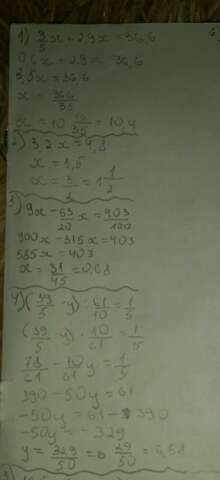 1) 3/5x + 2,9x = 36,6
0,6x + 2,9x = 36,6
3,5x = 36,6
x = 366/35
x = 10 16/35 = 10,4
2) 3,2x = 4,8
x = 1,5
x = 3/2 = 1 1/2
3) 9x - 63/20x = 403/100
900x - 315x = 403
585x = 403
x = 31/45 = 0,68
4) (39/5 - y) · 61/10 = 1/5
(39/5 - y) · 10/61 = 1/5
78/61 - 10/61y = 1/5
390 - 50y = 61
-50y = 61 - 390
-50y = -329
y = 329/50 = 6 29/50 = 6,58